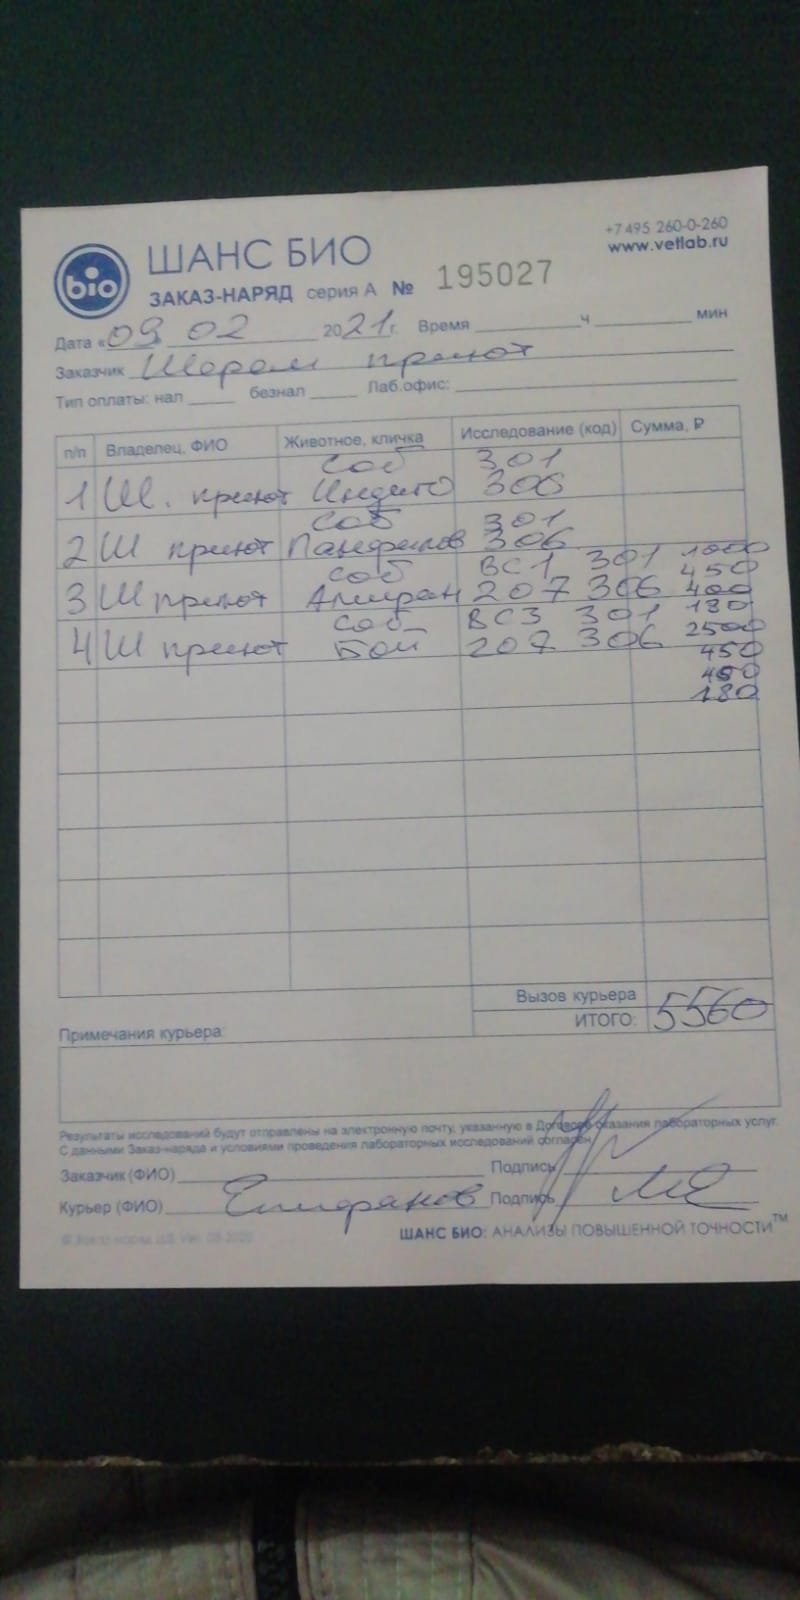 +7 495 260-0-260
www.vetlab.ru
bio
ШАНС БИО
ЗАКАЗ-НАРЯД серия А № 195027
Дата «09 02 2021 г. Время ч мин
Заказчик приют
Тип оплаты: нал безнал Лаб.офис:
п/п Владелец, ФИО Животное, кличка Исследование (код) Сумма, ₽
соб 301
1 Ш. приют Индиго 306
соб 301
2 Ш приют Панфилов 306
соб ВС1 301 1000
450
3 Ш приют Алиран 207 306 400
180
соб ВС3 301 2500
4 Ш приют Бой 207 306 450
450
180
Вызов курьера
ИТОГО: 5560
Примечания курьера:
Результаты исследований будут отправлены на электронную почту, указанную в Договоре оказания лабораторных услуг.
С данными Заказ-наряда и условиями проведения лабораторных исследований согласен
Заказчик (ФИО) Подпись
Курьер (ФИО) Епифанов Подпись
ШАНС БИО: АНАЛИЗЫ ПОВЫШЕННОЙ ТОЧНОСТИ™